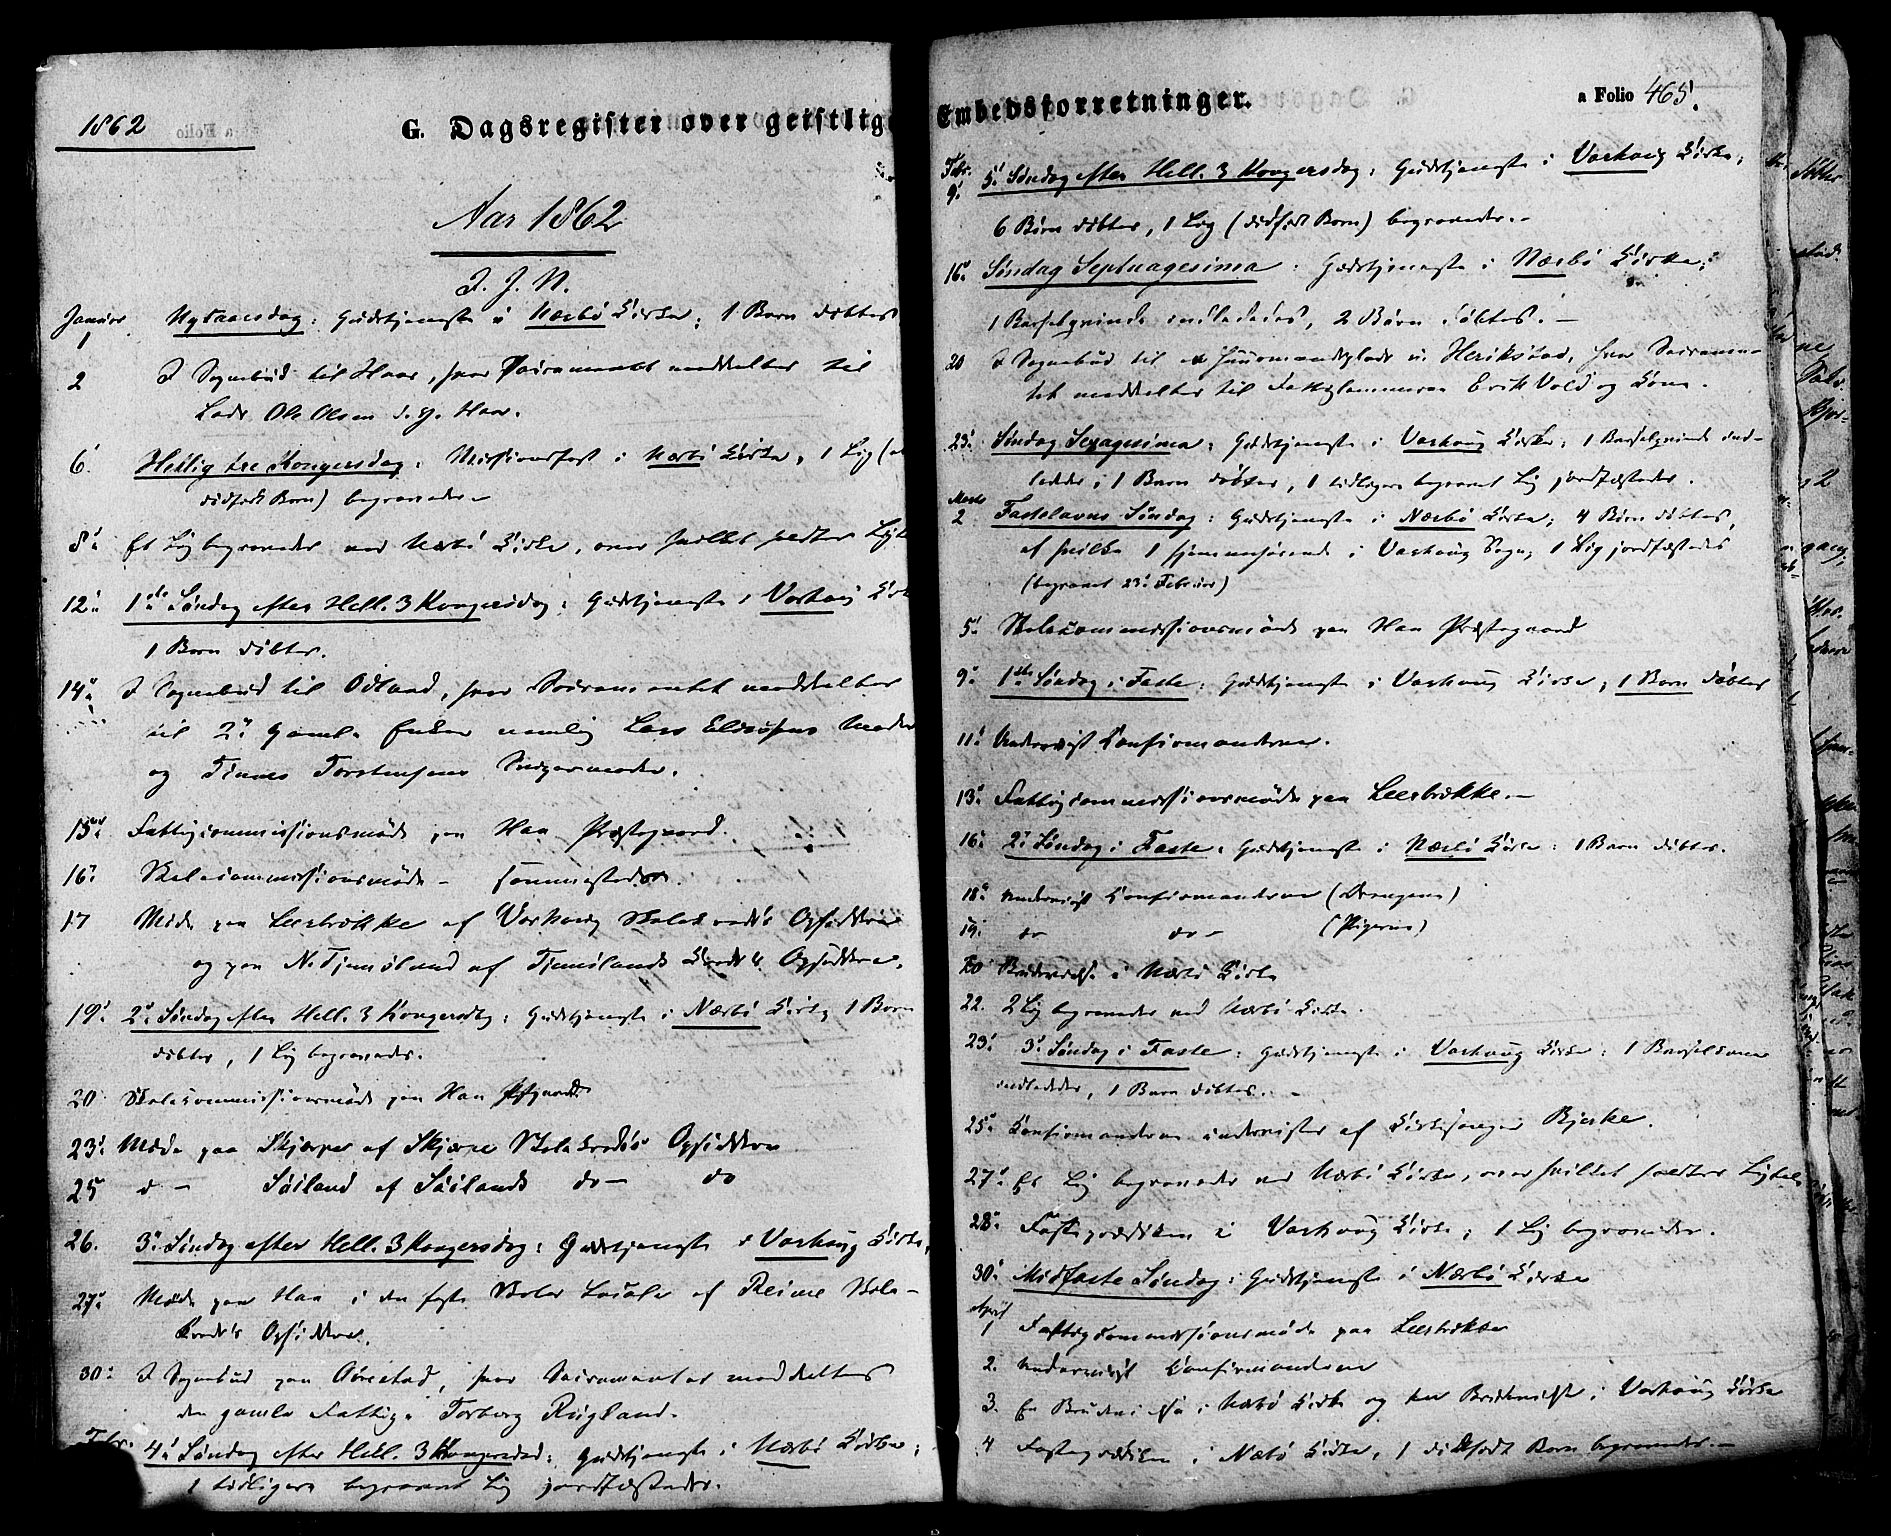 1862
G. Dagsregister over geistlig
Aar 1862
I. J. N.
Januar 1 Nytaarsdag: Gudstjeneste i Nærbö Kirke; 1 Barn döbtes
2 I Sognebud til Haar, hvor Sacramentet meddeltes til
Lods Ole Olsen d. y. Haar.
6. Hellig tre Kongersdag: Missionsfest i Nærbö Kirke, 1 Lig (et
dödfödt Barn) begravedes
8. Et Lig begravedes ved Nærbö Kirke, over hvilket holdtes Ligt
12. 1ste Söndag efter Hell. 3 Kongersdag: Gudstjeneste i Varhoug Kirke
1 Barn döbtes.
14. I Sognebud til Odland, hvor Sacramentet meddeltes
til 2 gamle Enker nemlig Lars Moder
og Tönnes Torstensens Svigermoder.
15. Fattigcommissionsmöde paa Haa Præstegaard.
16. Skolecommissionsmöde sammesteds.
17 Möde paa Leerbrekke af Varhoug Skolekreds's Opsiddere
og paa N. Tjemsland af Tjemslands Kreds's Opsiddere.
19. 2. Söndag efter Hell. 3 Kongersdag: Gudstjeneste i Nærbö Kirke, 1 Barn
döbtes, 1 Lig begravedes.
20 Skolecommissionsmöde paa Haa Pstgaard
23. Möde paa Skjærpe af Skjærpe Skolekreds's Opsiddere
25 do - Söiland af Söilands do - do
26. 3. Söndag efter Hell. 3 Kongersdag: Gudstjeneste i Varhoug Kirke,
27. Möde paa Haa i den faste Skoles Locale af Reime Skole-
kreds's Opsiddere.
30. I Sognebud paa Aarestad, hvor Sacramentet meddeltes
den gamle Fattige Torberg Rugland.
Febr. 4. Söndag efter Hell. 3 Kongersdag: Gudstjeneste i Nærbö Kirke;
1 tidligere begravet Lig jordfæstedes.
Embedsforretninger.
a Folio 465.
Febr. 9. 5. Söndag efter Hell. 3 Kongersdag: Gudstjeneste i Varhoug Kirke;
6 Börn döbtes, 1 Lig (dödfödt Barn) begravedes.-
16. Söndag Septuagesima: Gudstjeneste i Nærbö Kirke;
1 Barselqvinde indlededes, 2 Börn döbtes.-
20 I Sognebud til Huusmandsplads u. Herikstad, hvor Sacramen-
tet meddeltes til Fattiglemmerne Erik Vold og Kone.
23. Söndag Sexagesima: Gudstjeneste i Varhoug Kirke; 1 Barselqvinde ind-
lededes, 1 Barn döbtes, 1 tidligere begravet Lig jordfæstedes.
Marts 2 Fastelavns Söndag: Gudstjeneste i Nærbö Kirke; 4 Börn döbtes,
af hvilke 1 hjemmehörende i Varhoug Sogn; 1 Lig jordfæstedes
(begravet 23. Februar)
5. Skolecommissionsmöde paa Haa Præstegaard
9. 1ste Söndag i Faste: Gudstjeneste i Varhoug Kirke, 1 Barn döbtes
11. Underviist Confirmanderne.
13. Fattigcommissionsmöde paa Leerbrekke.-
16. 2. Söndag i Faste: Gudstjeneste i Nærbö Kirke: 1 Barn döbtes.
18. Underviist Confirmanderne (Drengene)
19. do do - (Pigerne)
20 Brudevielse i Nærbö Kirke
22. 2 Lig begravedes ved Nærbö Kirke.
23. 3. Söndag i Faste: Gudstjeneste i Varhoug Kirke: 1 Barselkone
indlededes, 1 Barn döbtes. -
25. Confirmanderne undervistes af Kirkesanger Bjerke.
27. Et Lig begravedes ved Nærbö Kirke, over hvilket holdtes Ligtale
28. Fasteprædiken i Varhoug Kirke; 1 Lig begravedes.
30. Midfaste Söndag: Gudstjeneste i Nærbö Kirke
April 1 Fattigcommissionsmöde paa Leerbrekke
2. Underviist Confirmanderne
3. En Brudevielse i Nærbö Kirke og een Brudevielse i Varhoug Kirke
4 Fasteprædiken i Nærbö Kirke, 1 dödfödt Barn begravedes.-